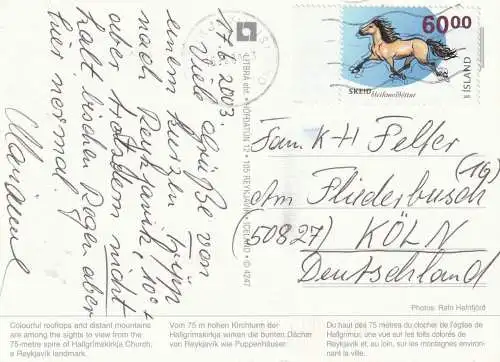 17.6.2003.
Viele Grüße von
einem kurzen Trip
nach Reykjavik, 10° +
ohne trotzdem nicht
kalt bischen Regen aber
hier normal.
Marianne
LITBRÁ ehf. • HÖFÐATÚN 12 • 105 REYKJAVÍK • ICELAND • © 4247
6000
SKEIÐ
ÍSLAND
Fam. K-H Felfer
Am Fliederbusch (19)
(50827) KÖLN
Deutschland
Photos: Rafn Hafnfjörð
Colourful rooftops and distant mountains
are among the sights to view from the
75-metre spire of Hallgrímskirkja Church,
a Reykjavík landmark.
Vom 75 m hohen Kirchturm der
Hallgrímskirkja wirken die bunten Dächer
von Reykjavík wie Puppenhäuser.
Du haut des 75 mètres du clocher de l'église de
Hallgrímur, une vue sur les toits colorés de
Reykjavík et, au loin, sur les montagnes environ-
nant la ville.